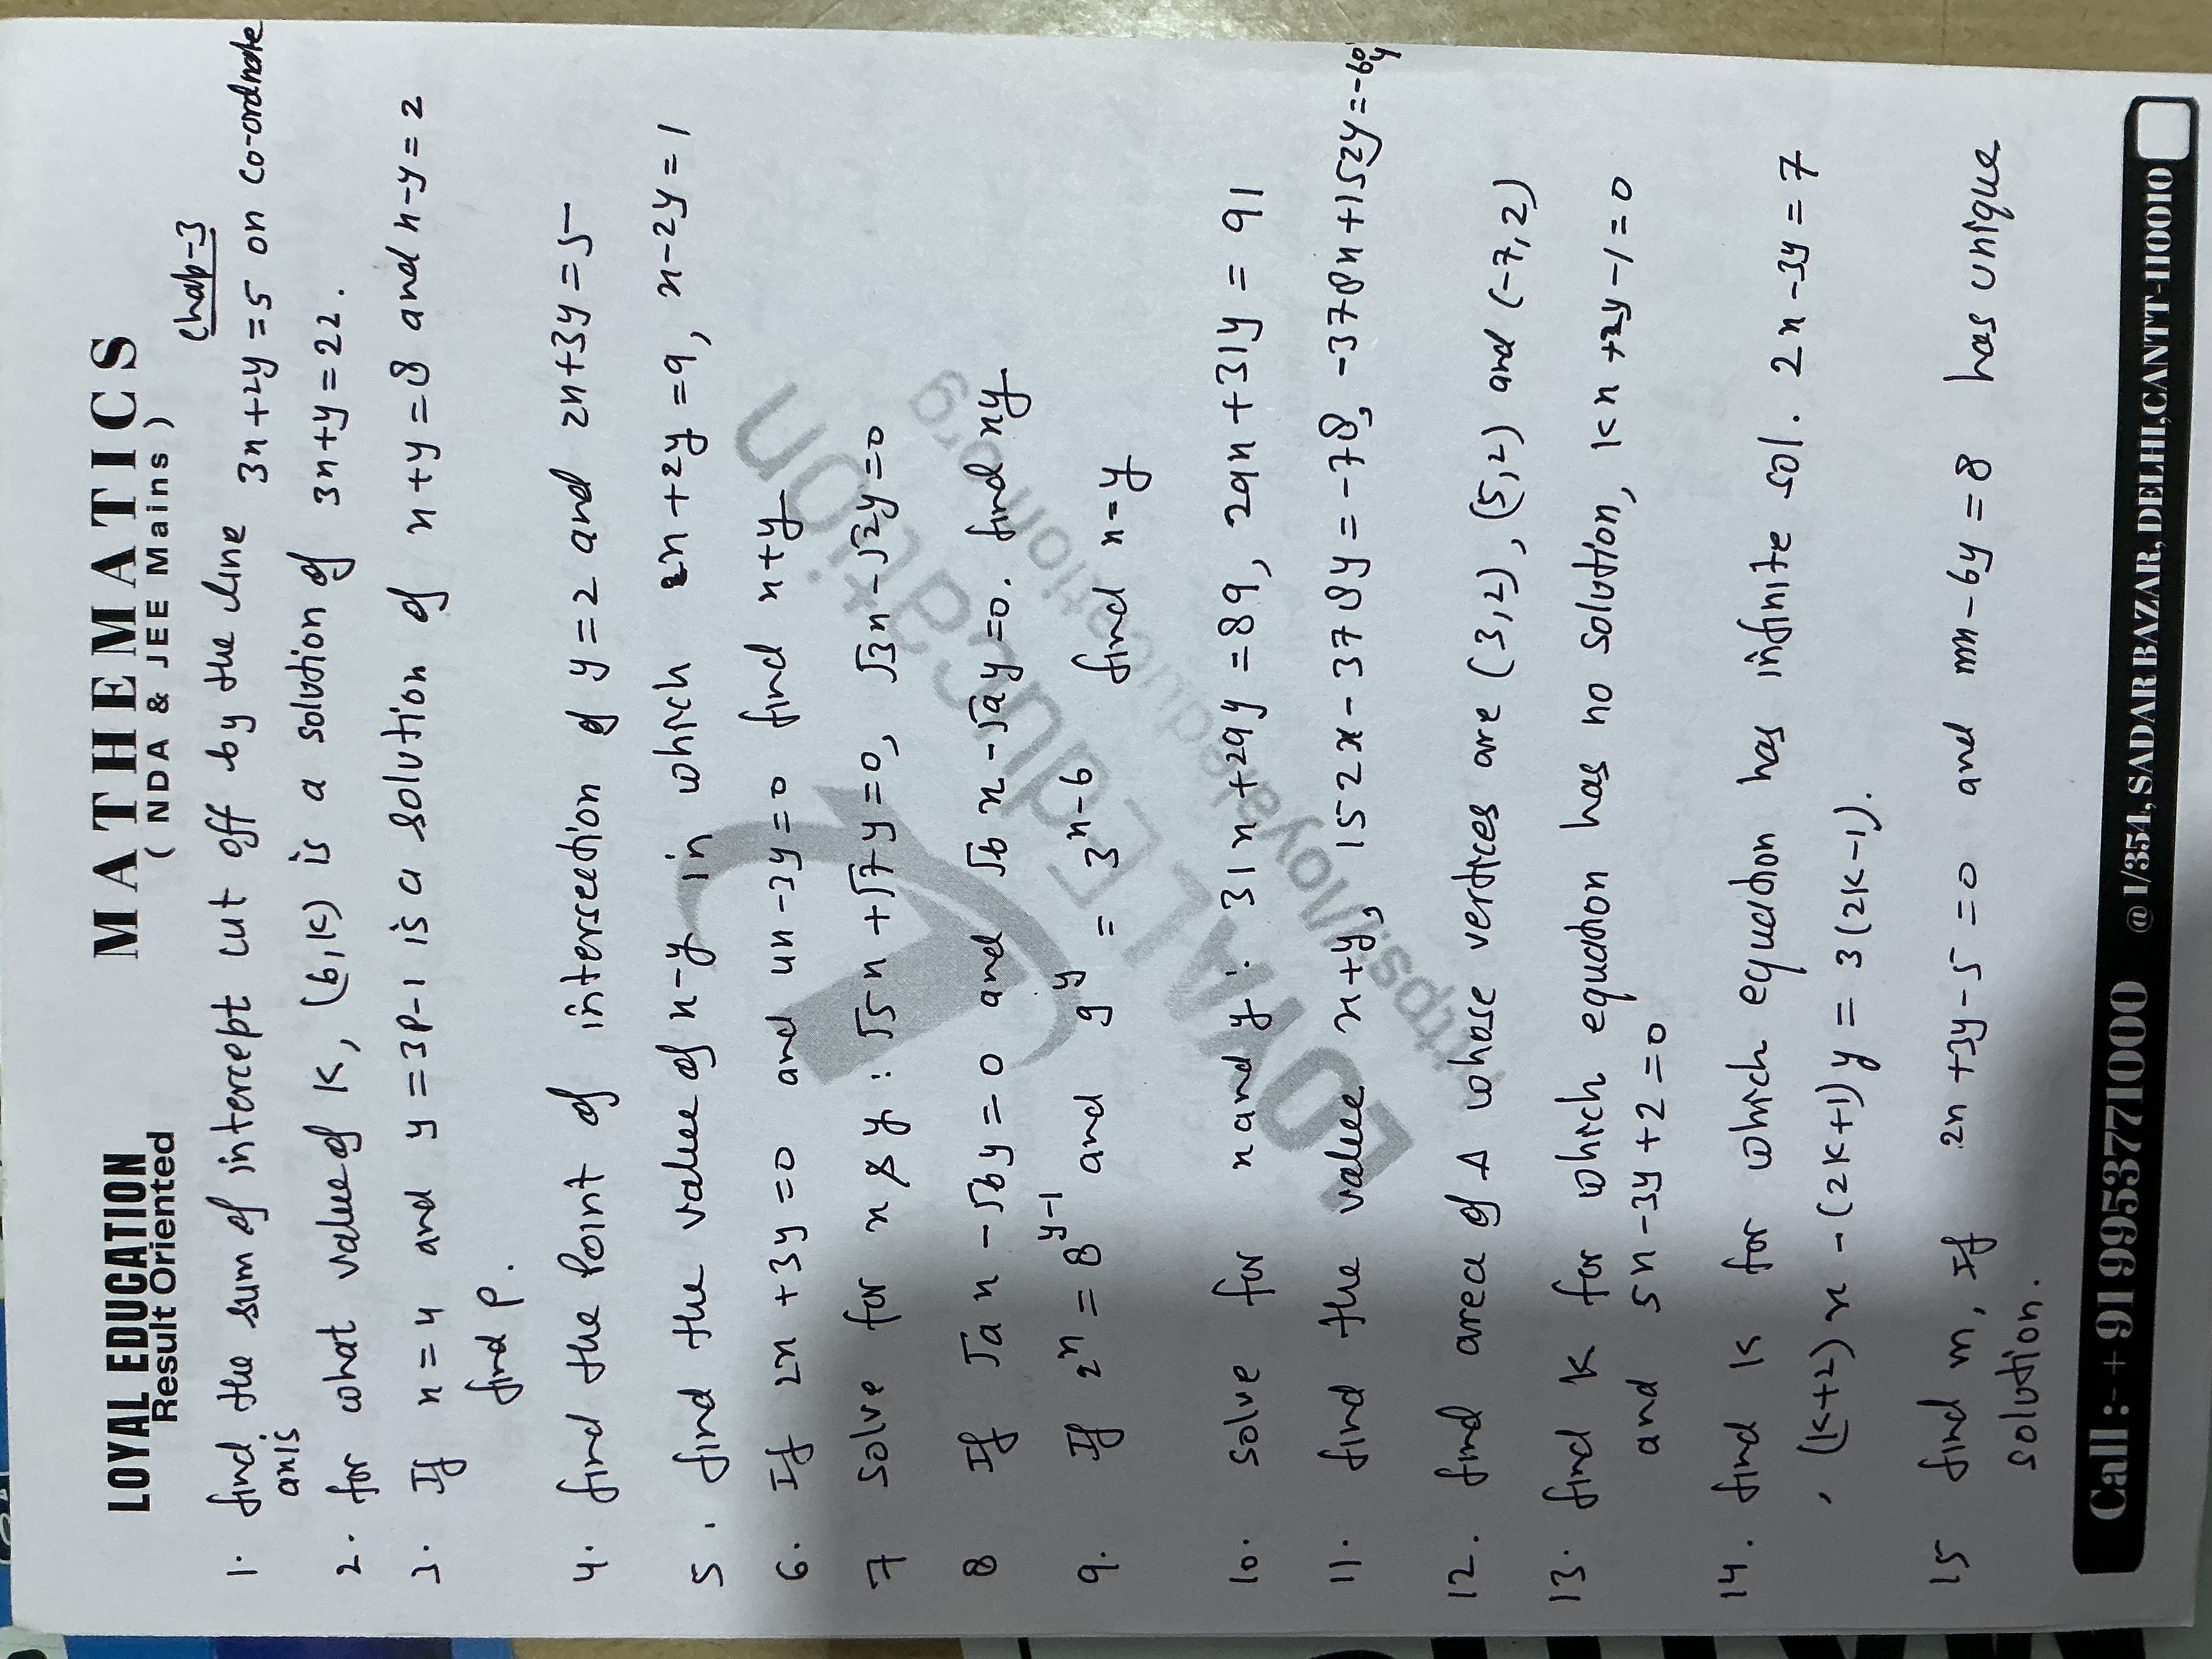 LOYAL EDUCATION
Result Oriented
MATHEMATICS
( NDA & JEE Mains )
Chap-3
1. find the sum of intercept cut off by the line 3x+2y=5 on co-ordinate
axis
2. for what value of K, (6,K) is a solution of 3x+y=22.
3. If x=4 and y=3P-1 is a solution of x+y=8 and x-y=2
find P.
4. find the Point of intersection of y=2 and 2x+3y=5
5. find the value of x-y in which 2x+2y=9, x-2y=1
6. If 2x+3y=0 and 4x-3y=0 find x+y
7 solve for x & y : √5x+√7y=0, √3x-√2y=0
8 If √a x-√b y=0 and √b x-√a y=0. find xy
9. If 2^x = 8^y-1 and 9^y = 3^x-6 find x-y
10. solve for x and y : 31x+29y=89, 29x+31y=91
11. find the value x+y, 152x-378y=-78, -378x+152y=-604
12. find area of Δ whose vertices are (3,2), (5,2) and (-7,2)
13. find K for which equation has no solution, Kx+2y-1=0
and 5x-3y+2=0
14. find K for which equation has infinite sol. 2x-3y=7
, (K+2)x-(2K+1)y=3(2K-1).
15 find m, If 2x+3y-5=0 and mx-6y=8 has unique
solution.
LOYAL Education
https://loyaleducation.org
Call :- + 91 9953771000 @ 1/351, SADAR BAZAR, DELHI, CANTT-110010